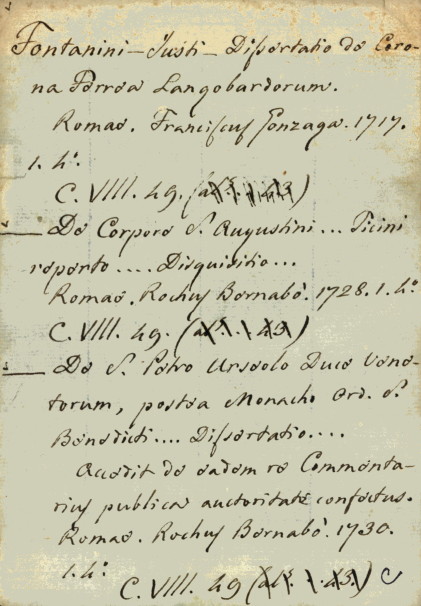 Fontanini – Justi – Dissertatio de Coro-
na Ferrea Langobardorum.
Romae. Franciscus Gonzaga. 1717.
1. 4º.
C. VIII. 49.
— De Corpore S. Augustini ... Ticini
reperto .... Disquisitio ...
Romae. Rochus Bernabò. 1728. 1. 4º
C. VIII. 49.
— De S. Petro Urseolo Duce Vene-
torum, postea Monacho Ord. S.
Benedicti .... Dissertatio ....
Accedit de eadem re Commenta-
rius publica auctoritate confectus.
Romae. Rochus Bernabò. 1730.
1. 4º.
C. VIII. 49